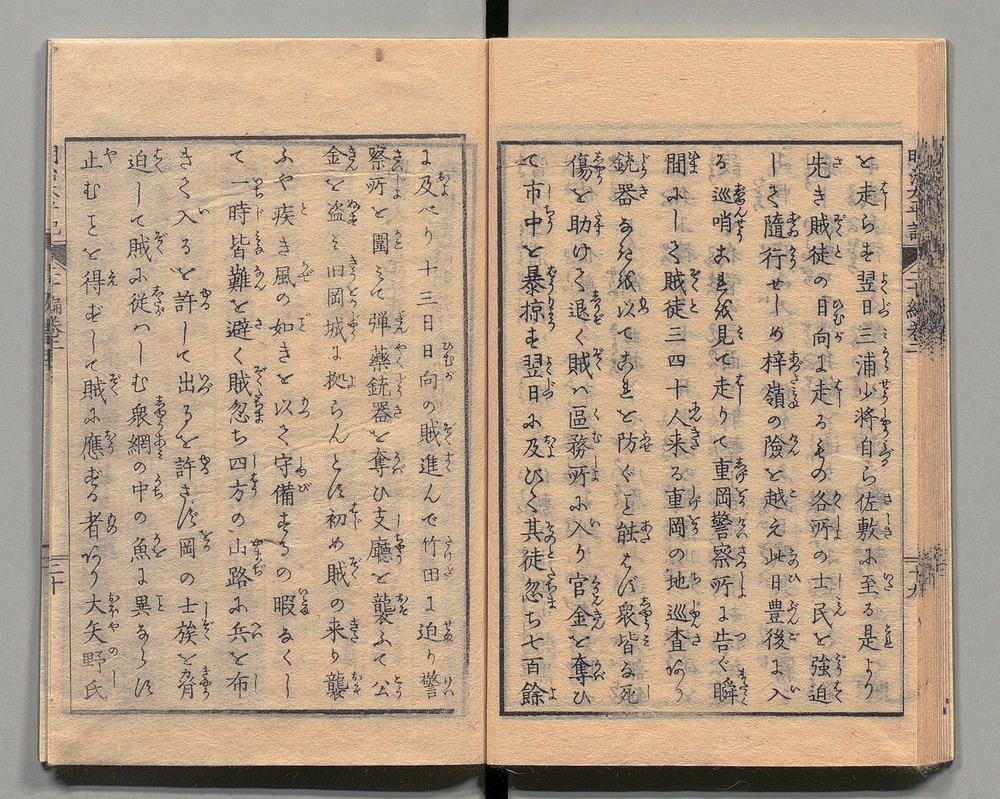 と走らす翌日三浦少将自ら佐敷に至る是より
先き賊徒の日向に走るもの各所の士民を強迫
して隨行せしめ梓嶺の險を越え此日豊後に入
る巡哨おれを見て走りて重岡警察所に告ぐ瞬
間にして賊徒三四十人来る重岡の地巡査あり
銃器なきを以てこれを防ぐこと能はず衆皆な死
傷を助けて退く賊ハ區務所に入り官金を奪ひ
て市中を暴掠す翌日に及びて其徒忽ち七百餘
に及べり十三日日向の賊進んで竹田に迫り警
察所を圍みて弾藥銃器を奪ひ支廳を襲ふて公
金を盗み旧岡城に拠らんとす初め賊の来り襲
ふや疾き風の如きを以て守備するの暇なくし
て一時皆難を避く賊忽ち四方の山路に兵を布
き入るを許して出るを許さず岡の士族を脅
迫して賊に従ハしむ衆網の中の魚に異ならず
止むことを得ずして賊に應ずる者あり大矢野氏
明治太平記
二十編巻二
二十九
二十